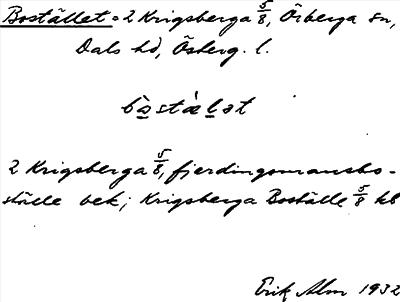 Bostället = 2 Krigsberga 5/8, Örberga sn,
Dals hd, Österg. l.
bòstǽlət
2 Krigsberga 5/8, fjerdingsmansbo-
ställe bek; Krigsberga Boställe 5/8 kb
Erik Alm 1932